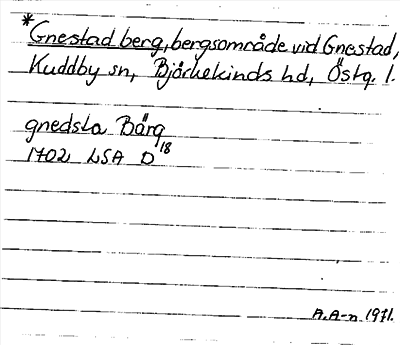 *Gnestad berg, bergsområde vid Gnestad,
Kuddby sn, Björkekinds hd, Östg. l.
gnedsla Bärg
1702 LSA D 18
A.A-n 1971.